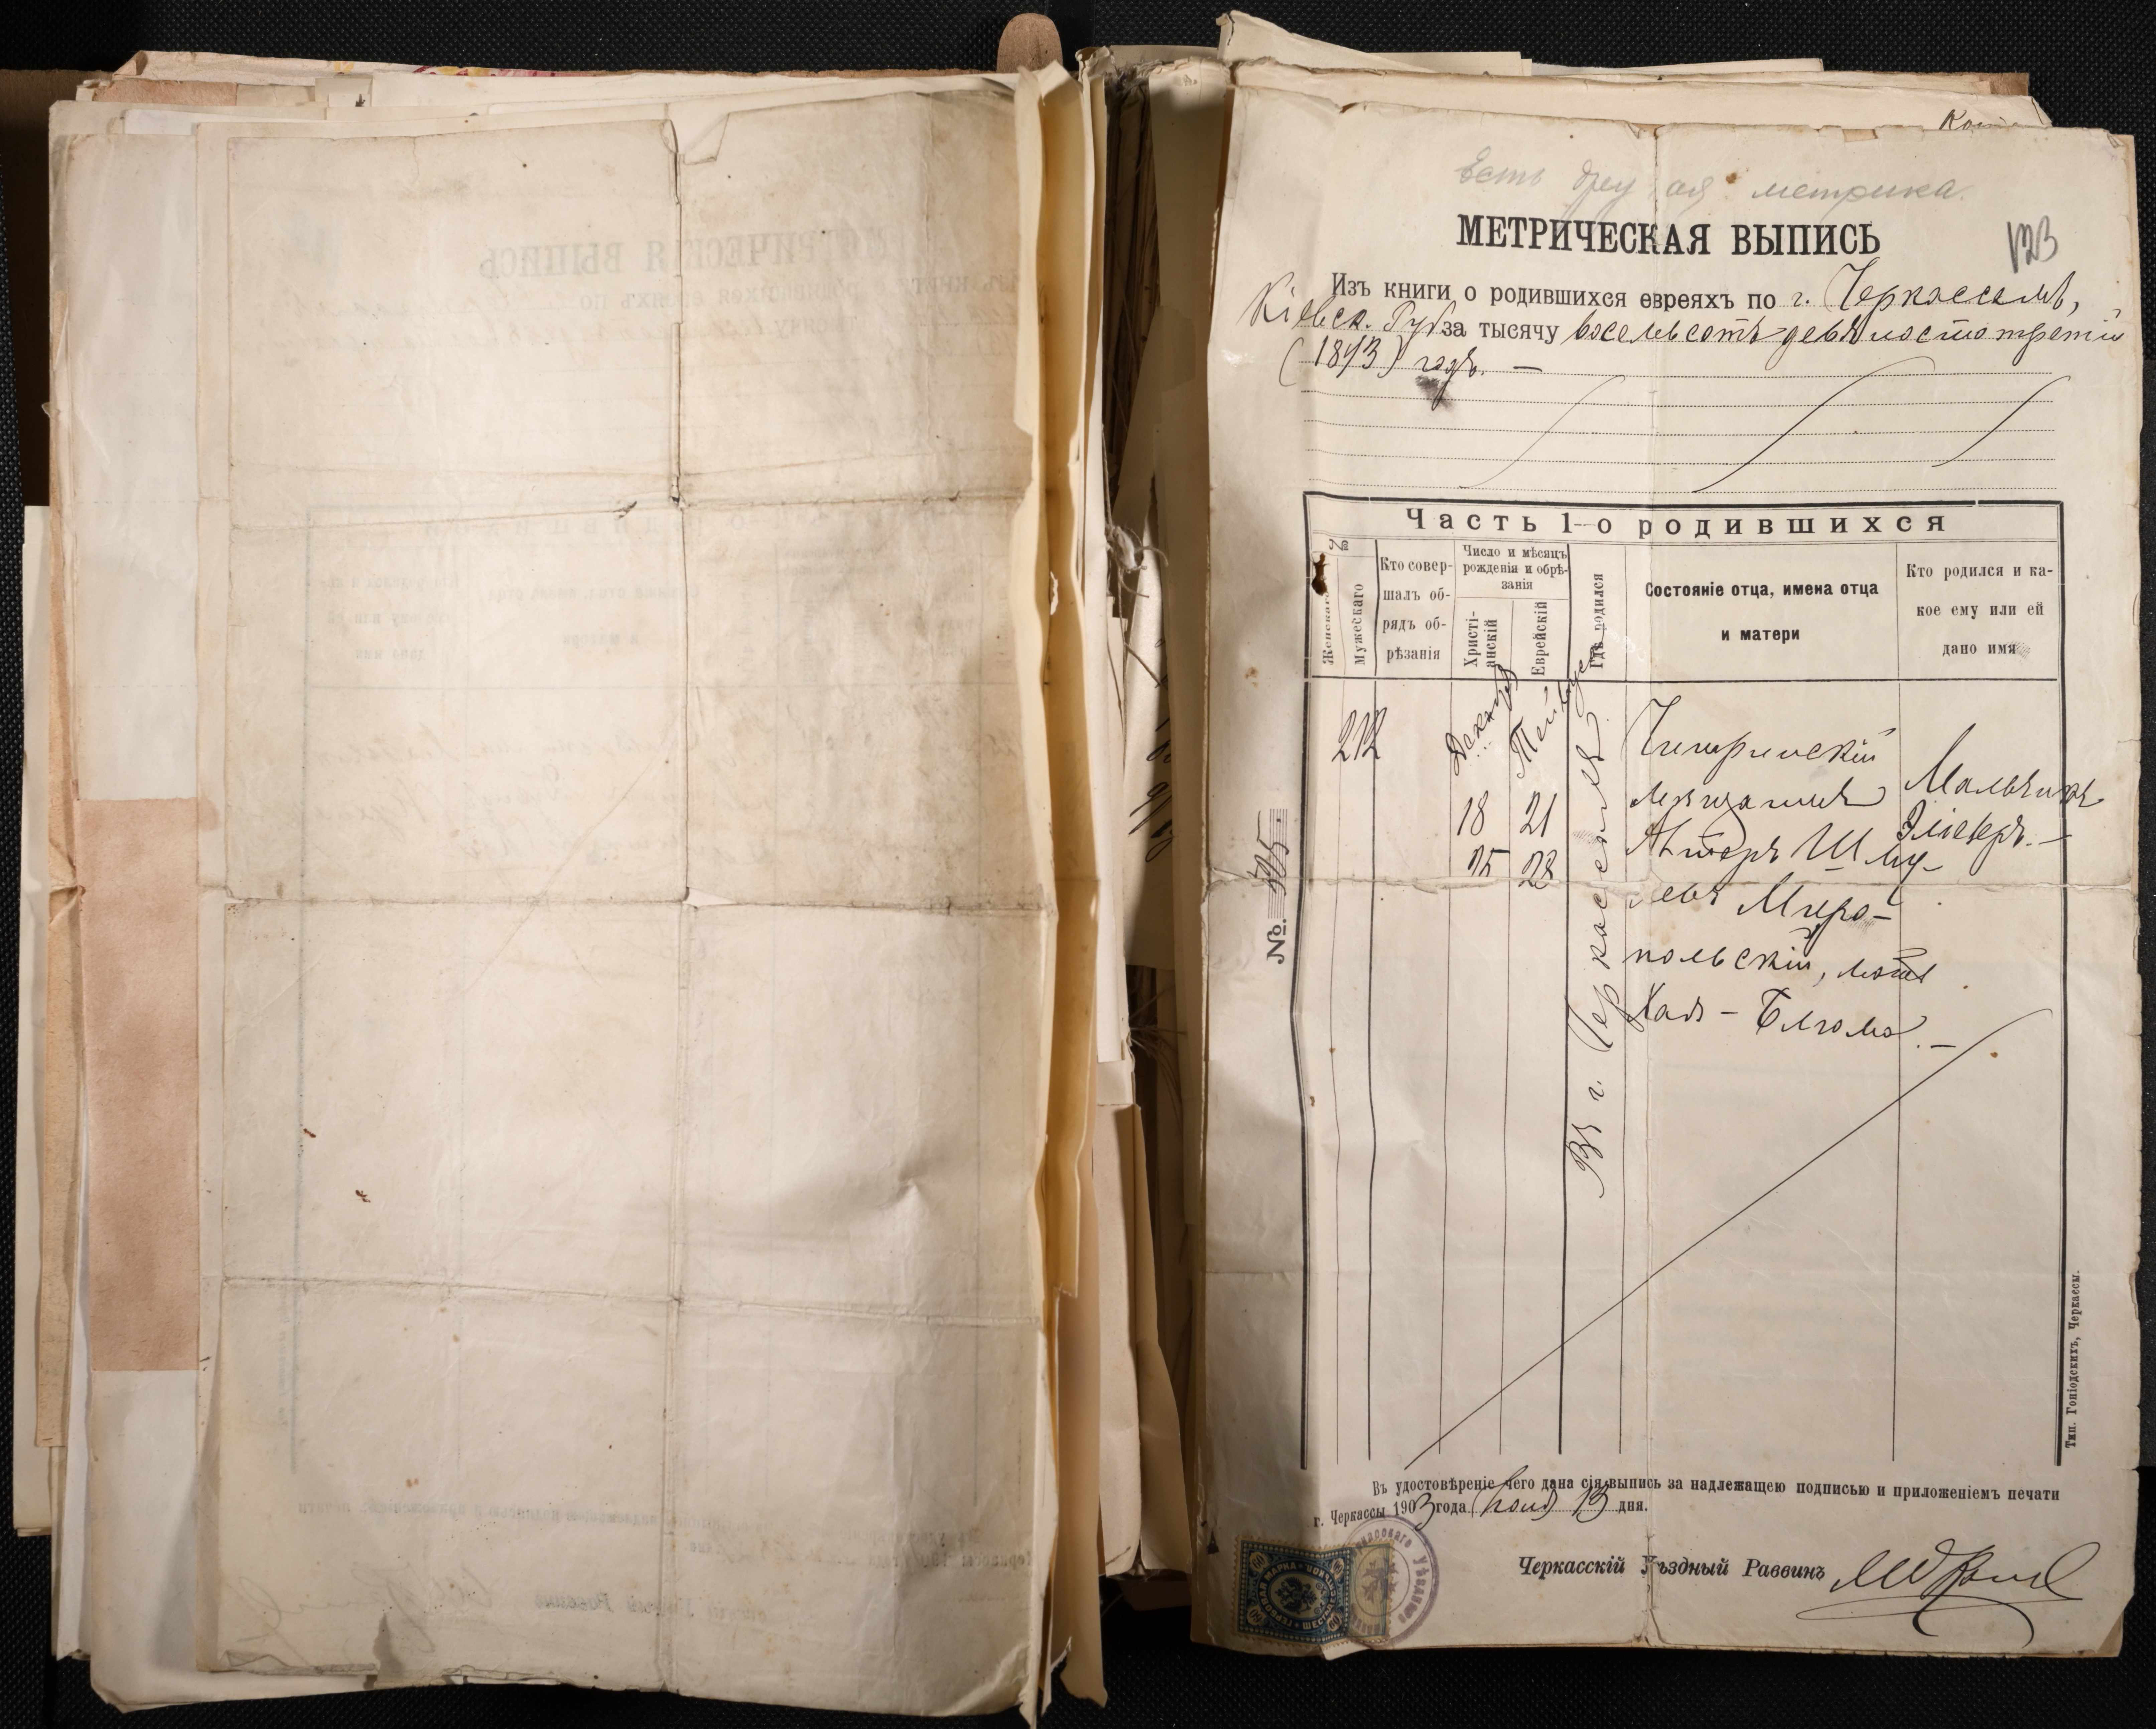 Есть другая метрика.
МЕТРИЧЕСКАЯ ВЫПИСЬ
123
Изъ книги о родившихся евреяхъ по г. Черкассамъ,
Кіевск. Губ. за тысячу восемьсотъ девяносто третій
(1893) годъ. —
Часть 1-о родившихся
№
Женскаго
Мужескаго
Кто совер-
шалъ об-
рядъ об-
рѣзанія
Число и мѣсяцъ
рожденія и обрѣ-
занія
Христі-
анскій
Еврейскій
Гдѣ родился
Состояніе отца, имена отца
и матери
Кто родился и ка-
кое ему или ей
дано имя
212
Декабря
18
25
Тейвуса
21
28
Въ г. Черкассахъ
Чигиринскій
мѣщанинъ
Шму-
левъ Миро-
польскій, мать
Хая - Блюма. —
Мальчикъ
Эліезеръ. —
№ 505.
Въ удостовѣреніе чего дана сія выпись за надлежащею подписью и приложеніемъ печати
г. Черкассы 1903 года Іюня 13 дня.
Черкасскій Уѣздный Раввинъ
ГЕРБОВАЯ МАРКА
60
Тип. Гоніодскихъ, Черкассы.